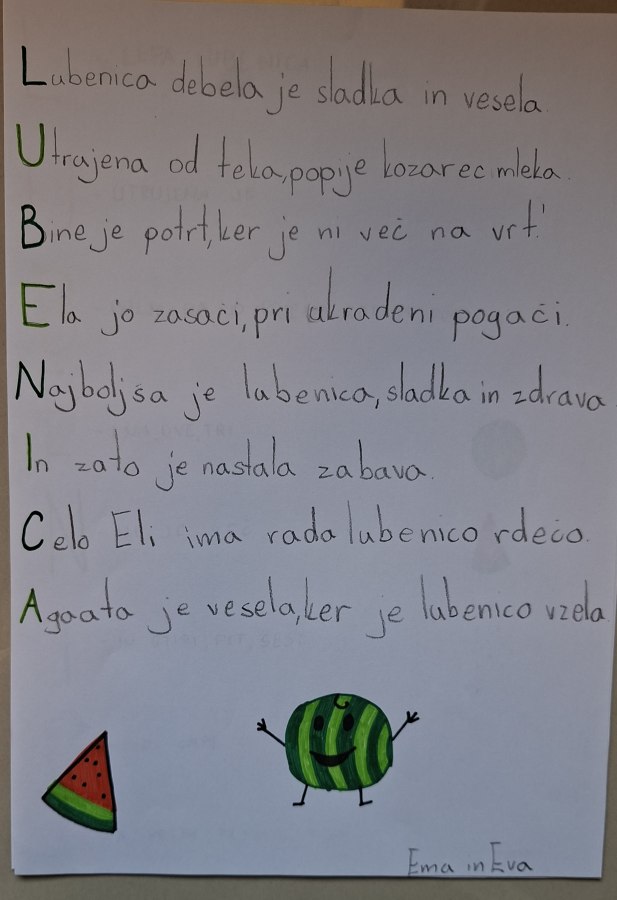 Lubenica debela je sladka in vesela.
Utrajena od teka, popije kozarec mleka.
Bine je potrt, ker je ni več na vrt.
Ela jo zasači, pri ukradeni pogači.
Najboljša je lubenica, sladka in zdrava
In zato je nastala zabava.
Celo Eli ima rada lubenico rdečo.
Agaata je vesela, ker je lubenico vzela
Ema in Eva